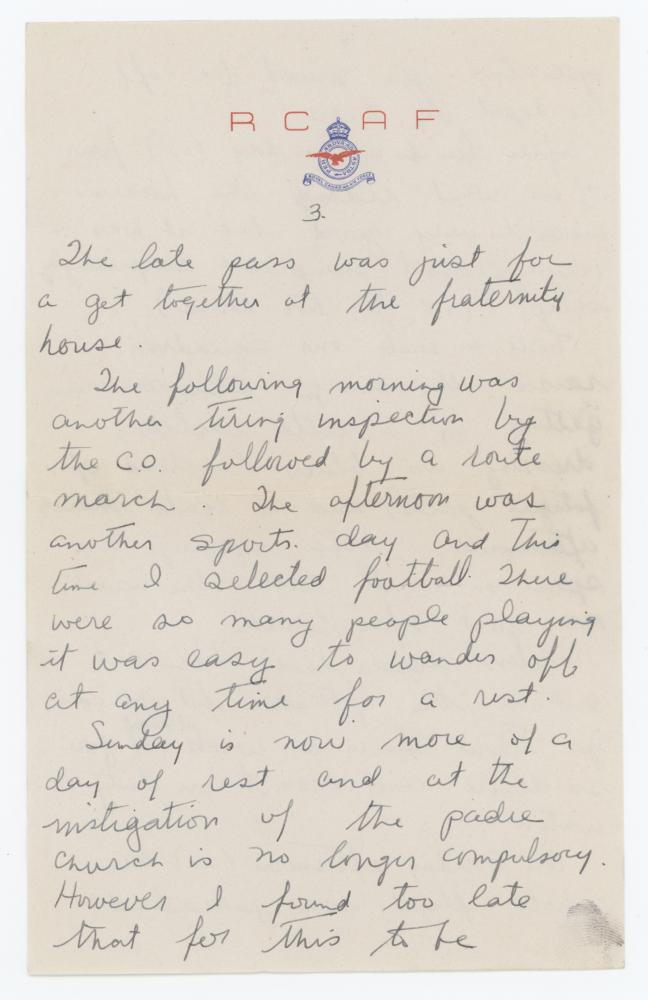 R C A F
PER ARDUA AD ASTRA
ROYAL CANADIAN AIR FORCE
3.
The late pass was just for
a get together at the fraternity
house.
The following morning was
another tiring inspection by
the C.O. followed by a route
march. The afternoon was
another sports. day and this
time I selected football. There
were so many people playing
it was easy to wander off
at any time for a rest.
Sunday is now more of a
day of rest and at the
instigation of the padre
church is no longer compulsory.
However I found too late
that for this to be